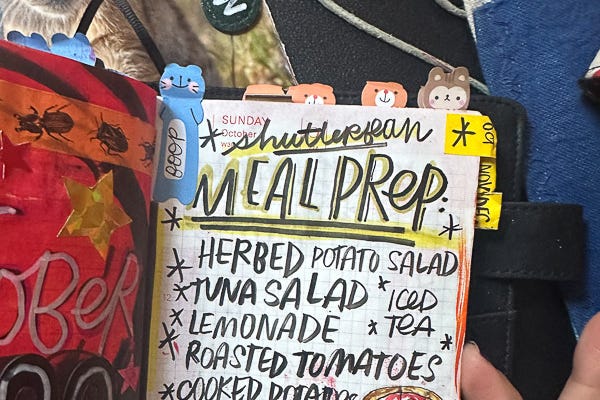 SUNDAY
October
* shutterbean
MEAL PREP:
* HERBED POTATO SALAD
* TUNA SALAD * ICED TEA *
* LEMONADE
* ROASTED TOMATOES
* COOKED POTATOES
OBER
POOP
OCT